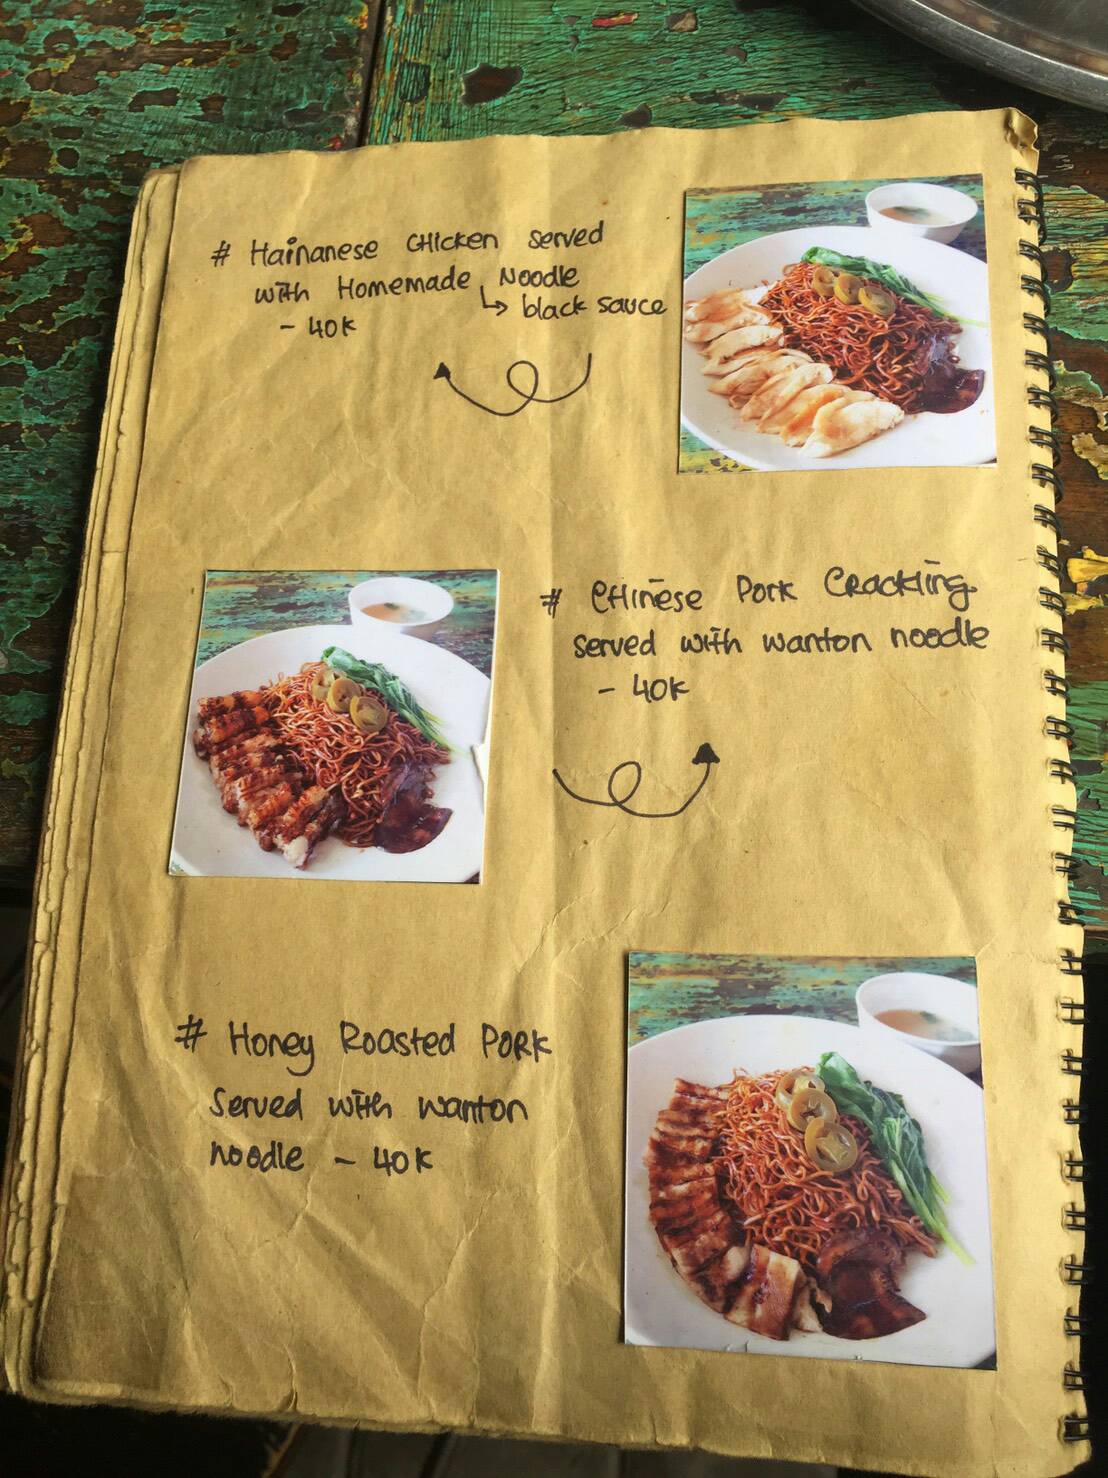 # Hainanese Chicken served
with Homemade Noodle
↳ black sauce
- 40K
# Chinese Pork Crackling
served with wanton noodle
- 40K
# Honey Roasted Pork
served with wanton
noodle - 40K